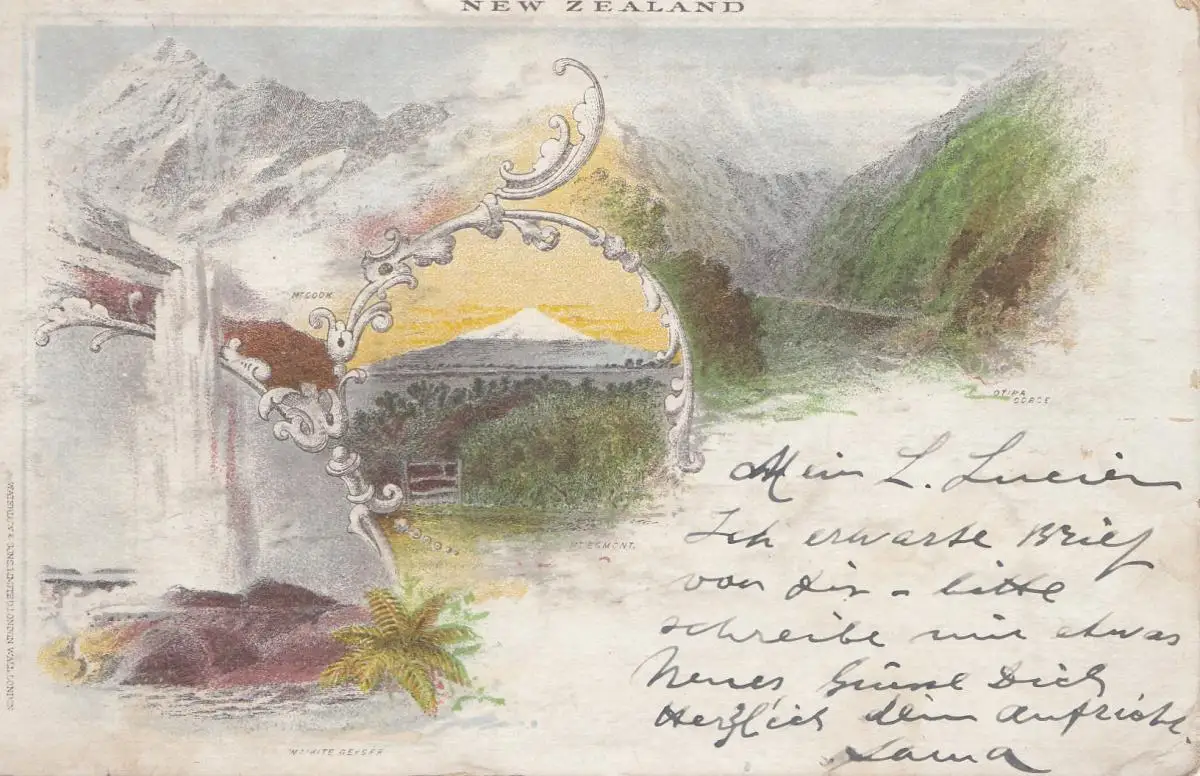 NEW ZEALAND
MT COOK
OTIRA
GORGE
Mein L. Lucien
Ich erwarte Brief
von Dir - bitte
schreibe mir etwas
Neues, Grüsse Dich
Herzlich dein aufricht.
MT EGMONT.
WAIKITE GEYSER
WATERLOW & SONS LIMITED, LONDON WALL, LONDON